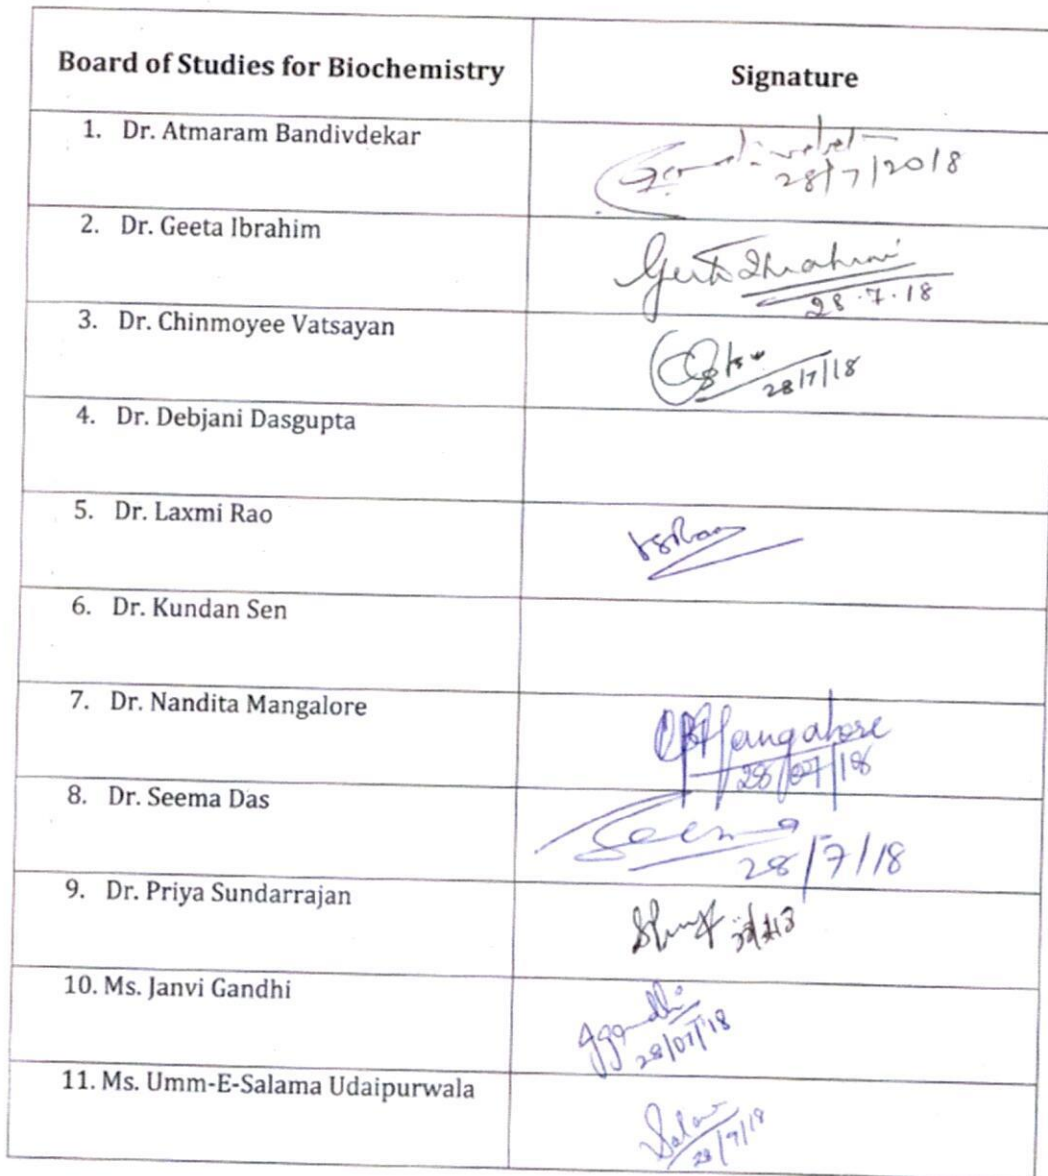 Board of Studies for Biochemistry
Signature
1. Dr. Atmaram Bandivdekar
28/7/2018
2. Dr. Geeta Ibrahim
Geeta Ibrahim
28.7.18
3. Dr. Chinmoyee Vatsayan
28/7/18
4. Dr. Debjani Dasgupta
5. Dr. Laxmi Rao
6. Dr. Kundan Sen
7. Dr. Nandita Mangalore
Mangalore
28/07/18
8. Dr. Seema Das
Seema
28/7/18
9. Dr. Priya Sundarrajan
10. Ms. Janvi Gandhi
JGandhi
28/07/18
11. Ms. Umm-E-Salama Udaipurwala